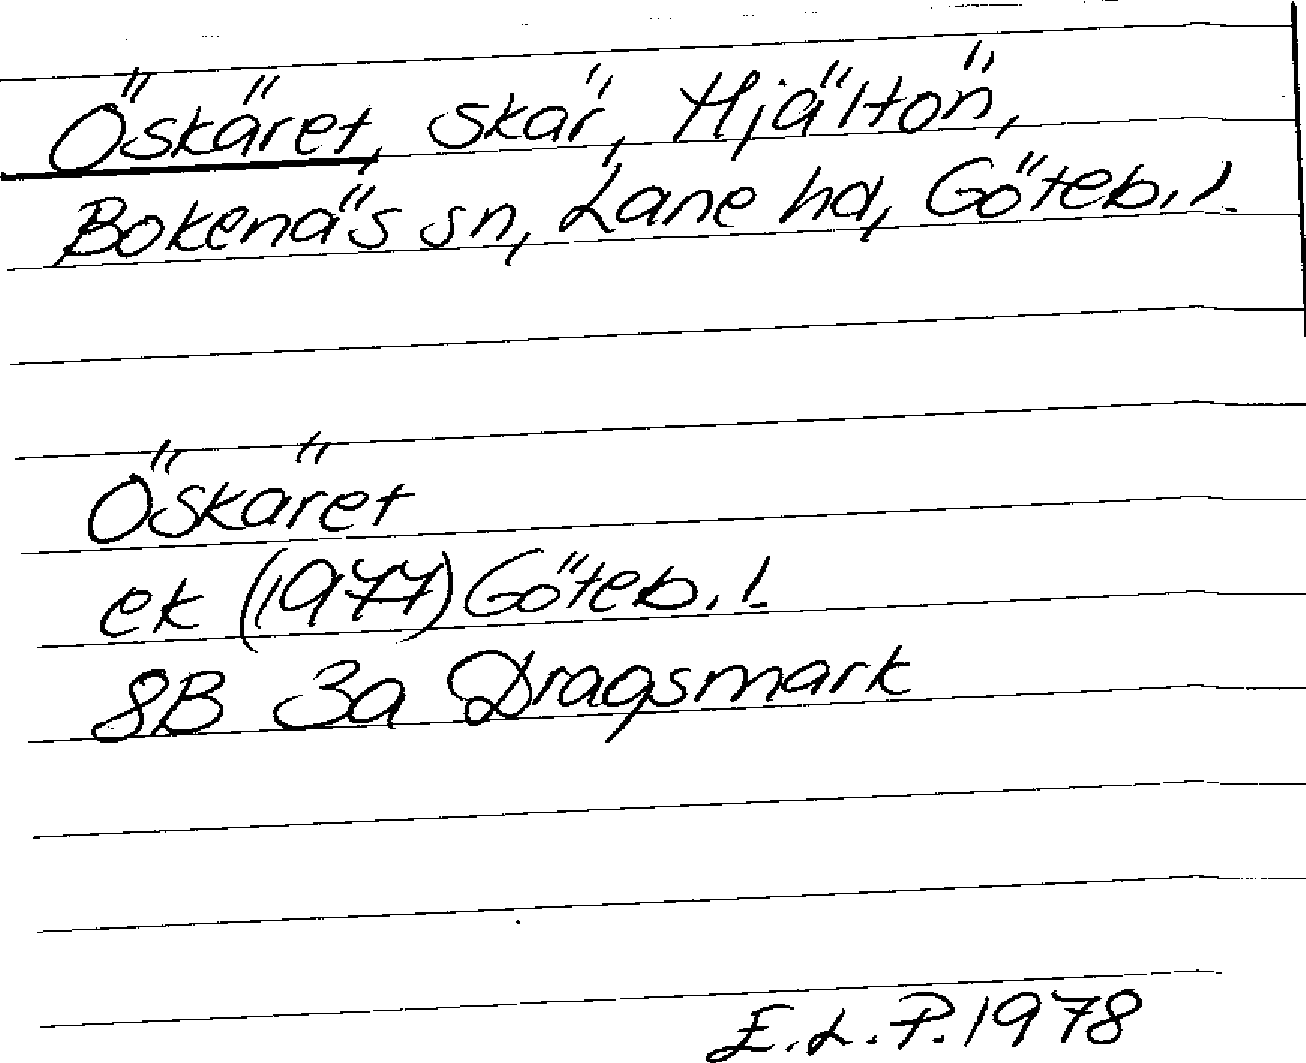 Öskäret, skär, Hjältön,
Bokenäs sn, Lane hd, Göteb. l.
Öskäret
ek (1977) Göteb. l.
8B 3a Dragsmark
E.L.P. 1978